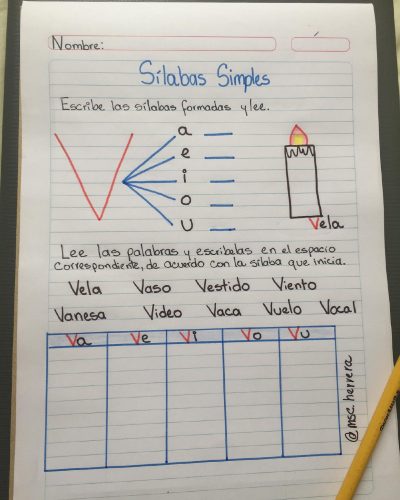 Nombre:
Sílabas Simples
Escribe las sílabas formadas y lee.
V
a
e
i
o
u
Vela
Lee las palabras y escribelas en el espacio
correspondiente, de acuerdo con la sílaba que inicia.
Vela Vaso Vestido Viento
Vanesa Video Vaca Vuelo Vocal
Va Ve Vi Vo Vu
@msc.herrera